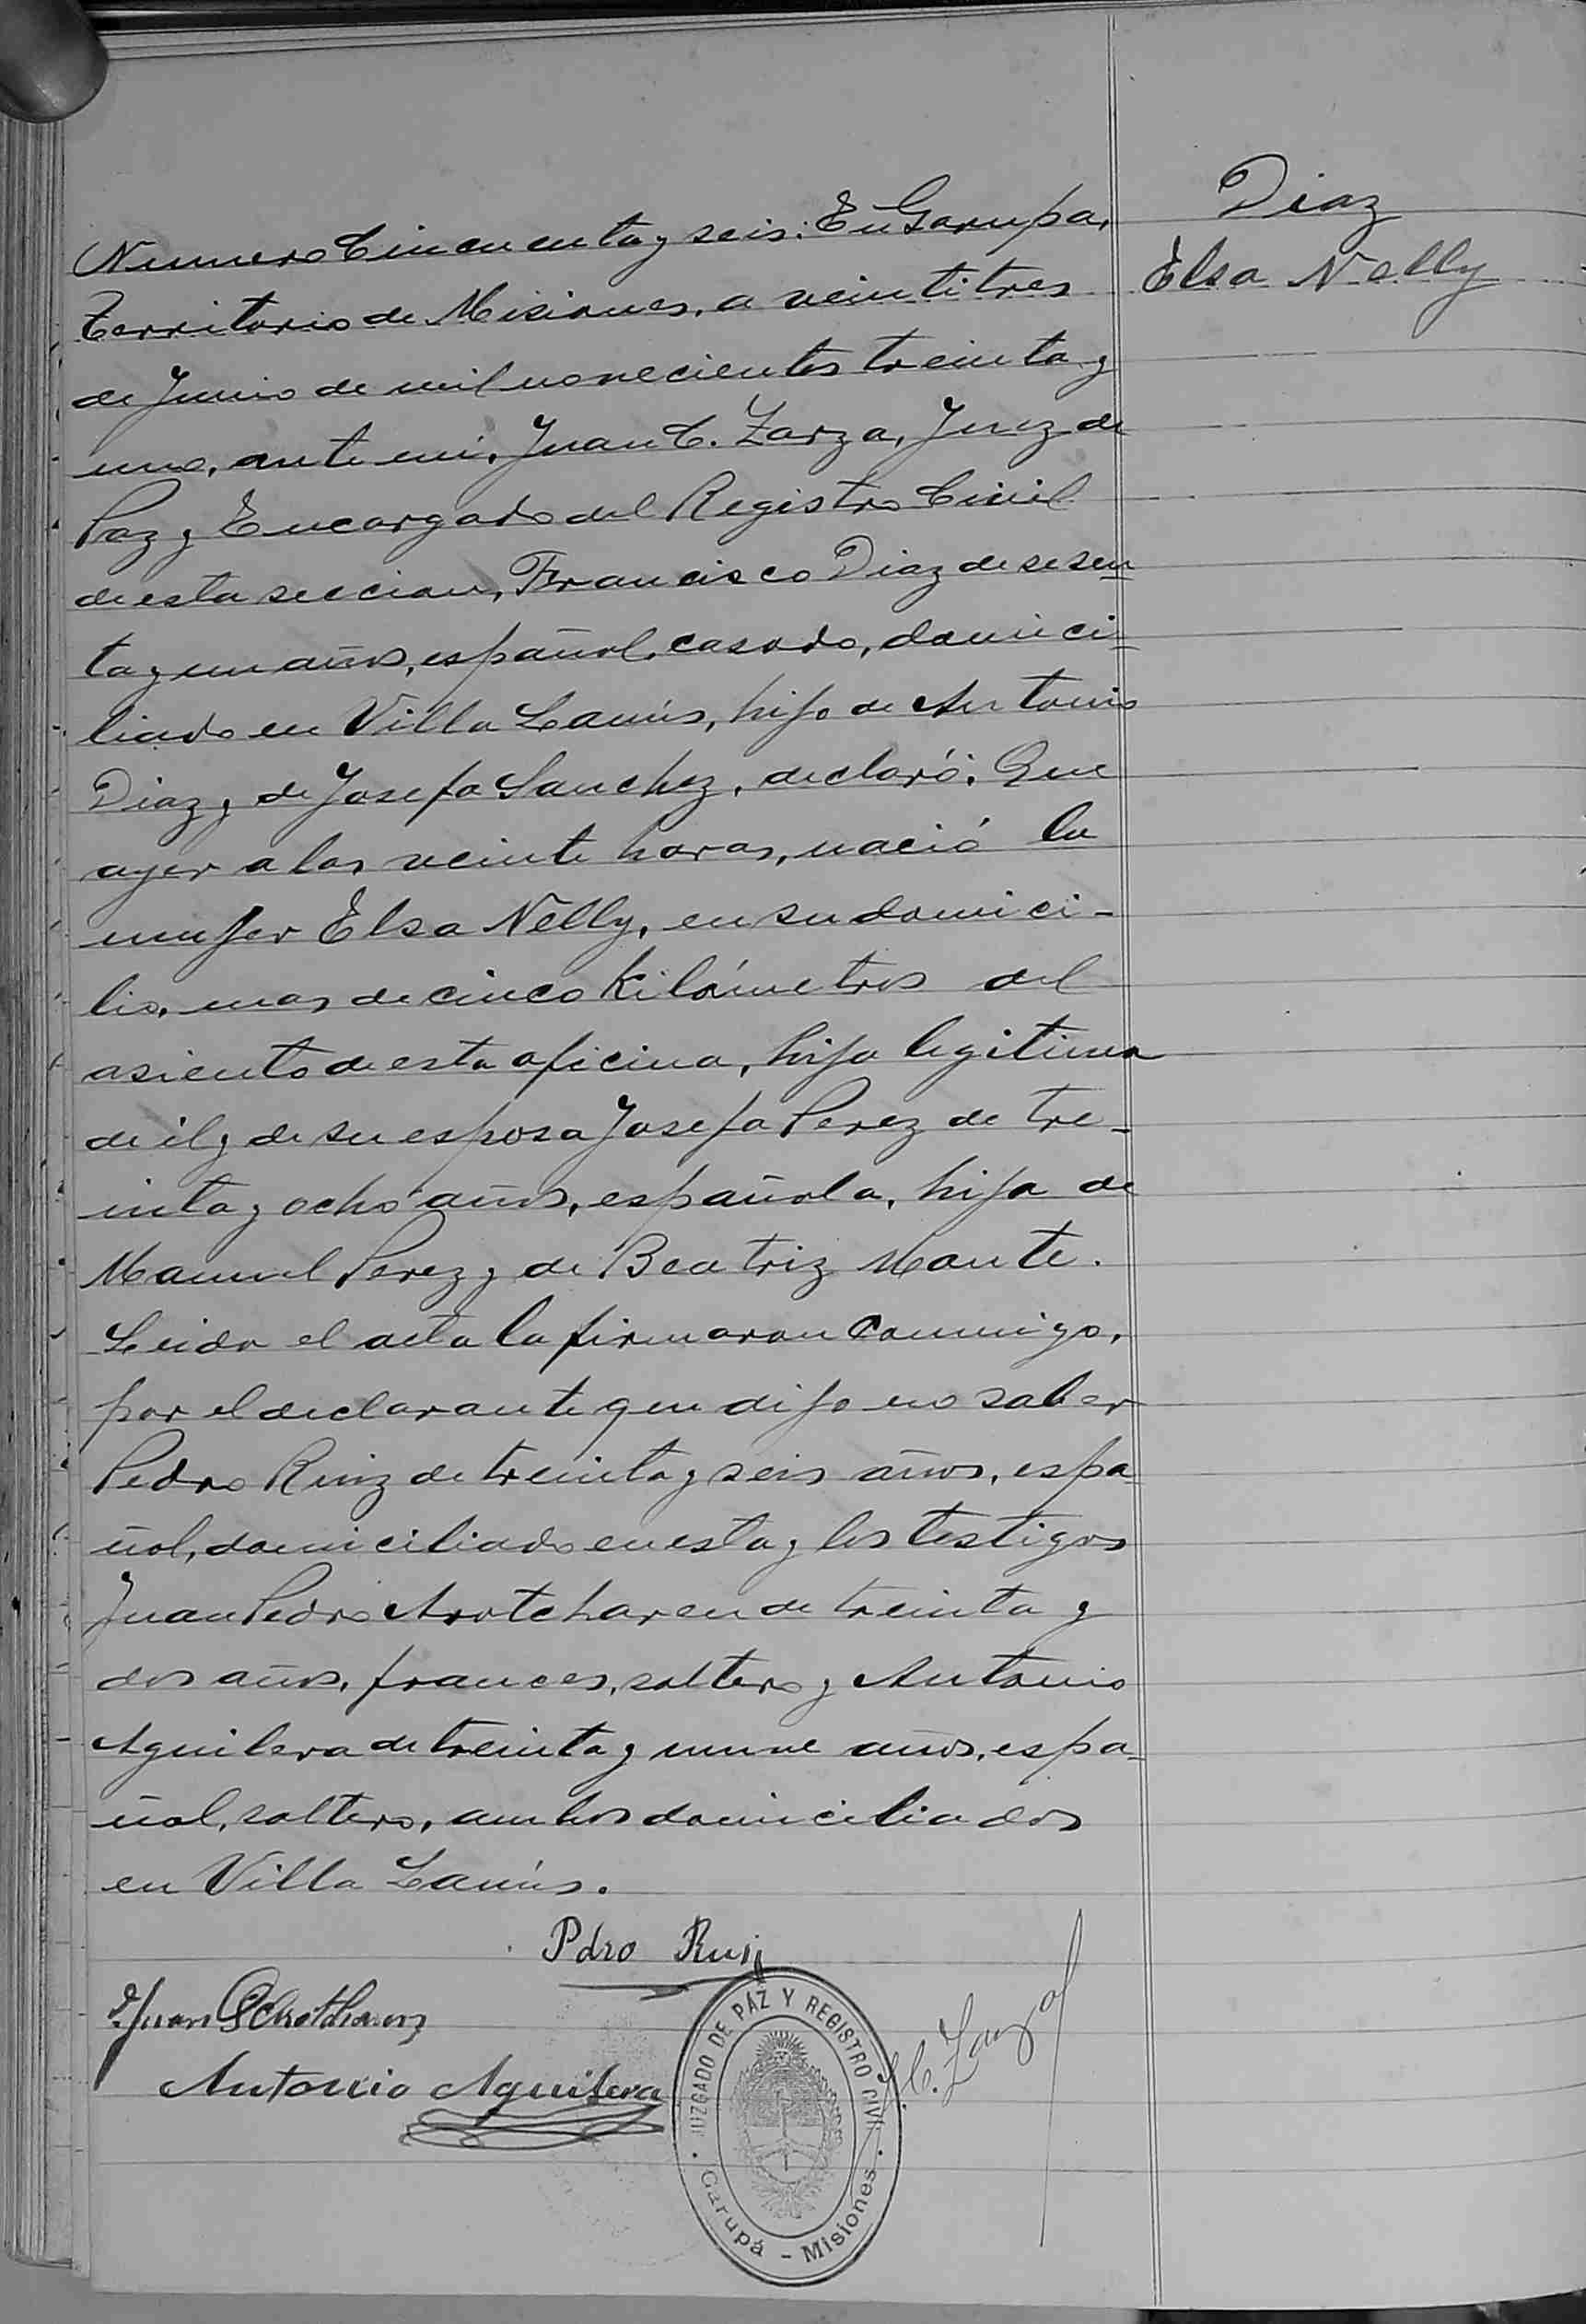 Diaz
Elsa Nelly
Numero Cincuenta y seis: En Garupa,
Territorio de Misiones, a veintitres
de Junio de mil novecientos treinta y
uno, ante mi, Juan C. Zarza, Juez de
Paz y Encargado del Registro Civil
de esta seccion, Francisco Diaz de sesen=
ta y un años, español, casado, domici=
liado en Villa Lanús, hijo de Antonio
Diaz y de Josefa Sanchez, declaró: Que
ayer a las veinte horas, nació la
mujer Elsa Nelly, en su domici-
lio, mas de cinco Kilómetros del
asiento de esta oficina, hija legitima
de él y de su esposa Josefa Perez de tre-
inta y ocho años, española, hija de
Manuel Perez y de Beatriz Mante.
Leida el acta la firmaron conmigo,
por el declarante que dijo no saber
Pedro Ruiz de treinta y seis años, espa-
ñol, domiciliado en esta y los testigos
Juan Pedro Arotcharen de treinta y
dos años, frances, soltero y Antonio
Aguilera de treinta y nueve años, espa-
ñol, soltero, ambos domiciliados
en Villa Lanús.
Pdro Ruiz
Juan
Antonio Aguilera
J.C. Zarza
JUZGADO DE PAZ Y REGISTRO CIVIL
Garupá - Misiones